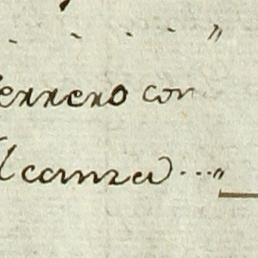 . . . . . "
errero con
lcanza ... "